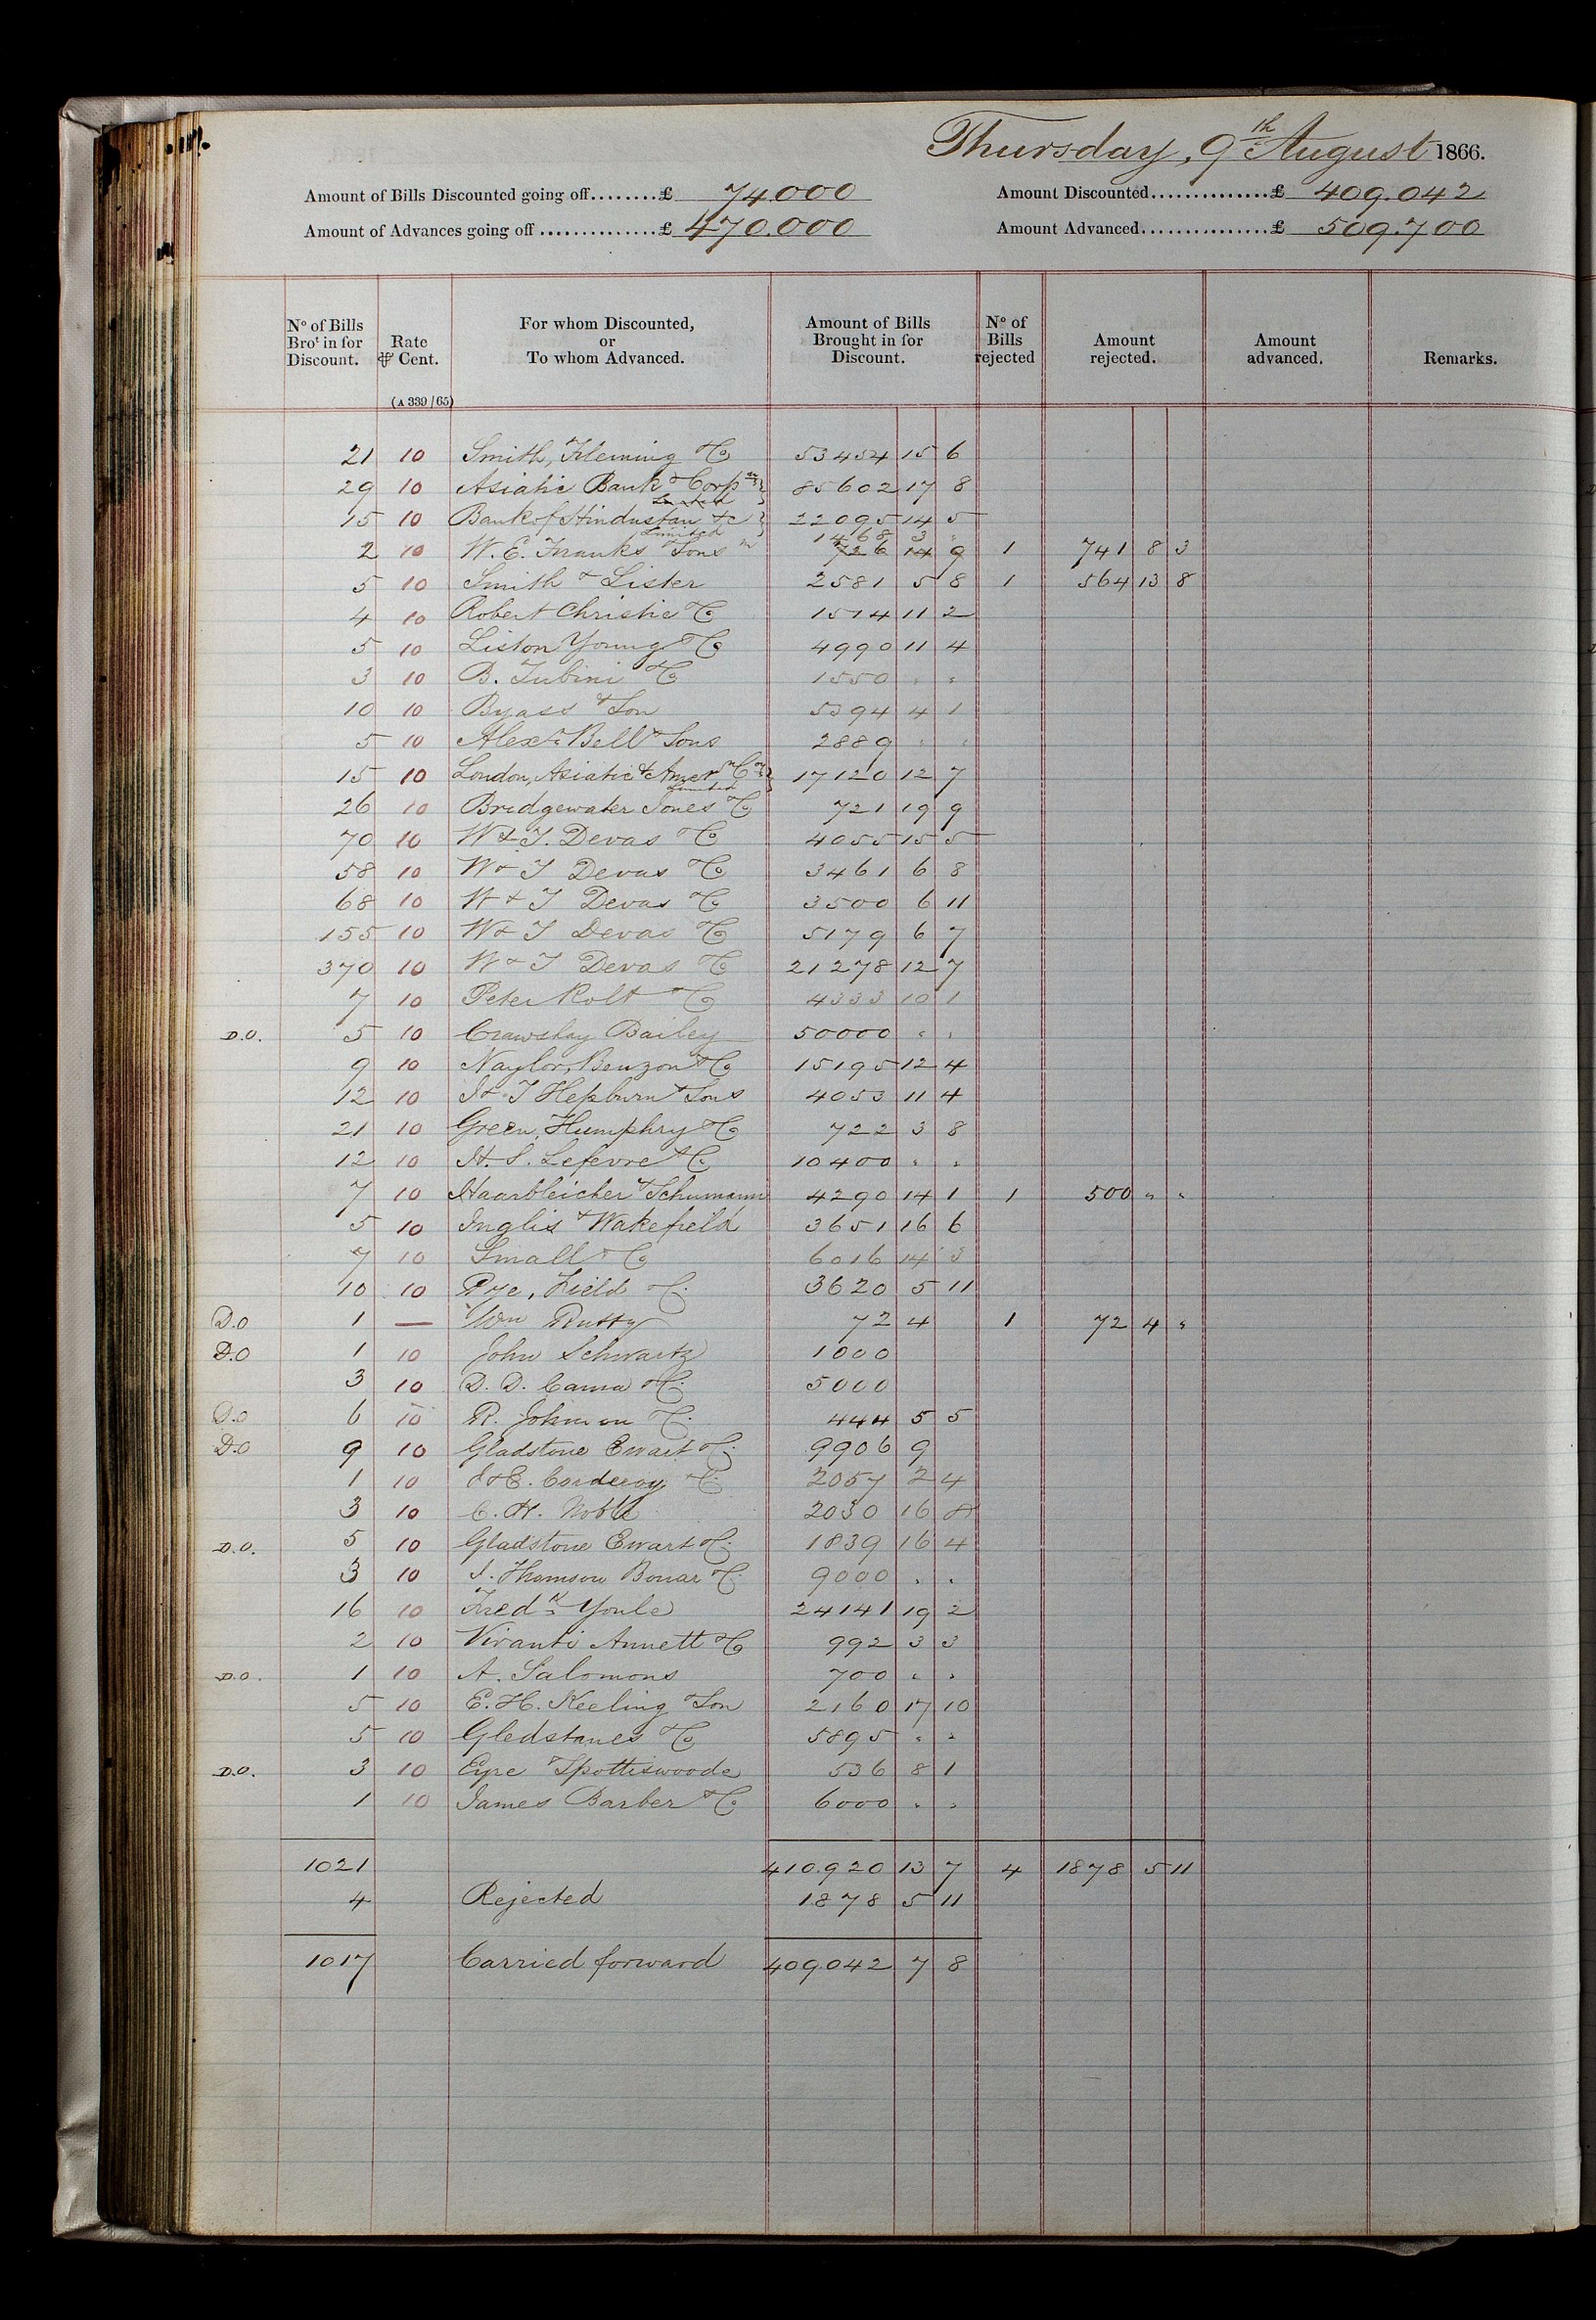 Thursday, 9th August 1866.
Amount of Bills Discounted going off........£ 74.000 Amount Discounted...............£ 409.042
Amount of Advances going off ...............£ 470.000 Amount Advanced................£ 509.700
No of Bills Brot in for Discount. Rate ⅌ Cent. (A 339/65) For whom Discounted, or To whom Advanced. Amount of Bills Brought in for Discount. No of Bills rejected Amount rejected. Amount advanced. Remarks.
21 10 Smith, Fleming & Co 53454 15 6
29 10 Asiatic Bankg Corpn Limited 85602 17 8
15 10 Bank of Hindustan &c Limited 22095 14 5
1468 3 "
2 10 W. E. Franks & Sons 726 14 9 1 741 8 3
5 10 Smith & Lister 2581 5 8 1 564 13 8
4 10 Robert Christie & Co 1514 11 2
5 10 Liston Young & Co 4990 11 4
3 10 B. Tubini & Co 1550 " "
10 10 Byass & Son 5394 4 1
5 10 Alexr Bell & Sons 2889 " "
15 10 London, Asiatic & Amern Coy Limited 17120 12 7
26 10 Bridgewater Jones & Co 721 19 9
70 10 W & T. Devas & Co 4055 15 5
58 10 W & T Devas & Co 3461 6 8
68 10 W & T Devas & Co 3500 6 11
155 10 W & T Devas & Co 5179 6 7
370 10 W & T Devas & Co 21278 12 7
7 10 Peter Rolt & Co 4333 10 1
D.O. 5 10 Crawshay Bailey 50000 " "
9 10 Naylor, Benzon & Co 15195 12 4
12 10 J & T Hepburn & Sons 4053 11 4
21 10 Green, Humphry & Co 722 3 8
12 10 H. S. Lefevre & Co 10400 " "
7 10 Haarbleicher & Schumann 4290 14 1 1 500 " "
5 10 Inglis & Wakefield 3651 16 6
7 10 Small & Co 6016 14 3
10 10 Pye, Field & Co 3620 5 11
D.O 1 — Wm Rutty 72 4 1 72 4 "
D.O 1 10 John Schwartz 1000
3 10 D. D. Cama & Co 5000
D.O 6 10 R. Johnson & Co 444 5 5
D.O 9 10 Gladstone Ewart & Co 9906 9
1 10 J & E. Corderoy & Co 2057 2 4
3 10 C. H. Noble 2030 16 8
D.O. 5 10 Gladstone Ewart & Co 1839 16 4
3 10 J. Thomson Bonar & Co 9000 " "
16 10 Fredk Youle 24141 19 2
2 10 Vivanti Annett & Co 992 3 3
D.O. 1 10 A. Salomons 700 " "
5 10 E. H. Keeling & Son 2160 17 10
5 10 Gledstanes & Co 5895 " "
D.O. 3 10 Eyre & Spottiswoode 536 8 1
1 10 James Barber & Co 6000 " "
1021 410.920 13 7 4 1878 5 11
4 Rejected 1878 5 11
1017 Carried forward 409.042 7 8